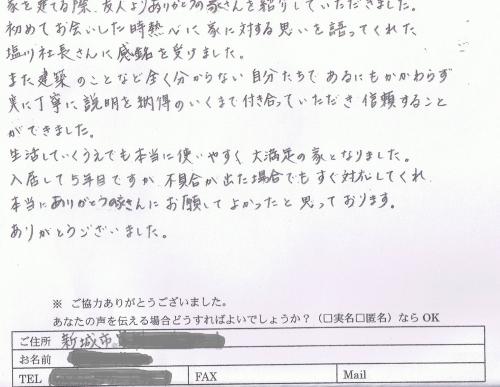 家を建てる際、友人よりありがとうの家さんを紹介していただきました。
初めてお会いした時熱心に家に対する思いを語ってくれた
塩川社長さんに感銘を受けました。
また建築のことなど全く分からない自分たちであるにもかかわらず
実に丁寧に説明を納得のいくまで付き合っていただき信頼すること
ができました。
生活していくうえでも本当に使いやすく大満足の家となりました。
入居して5年目ですが不具合が出た場合でもすぐ対応してくれ
本当にありがとうの家さんにお願してよかったと思っております。
ありがとうございました。
※ ご協力ありがとうございました。
あなたの声を伝える場合どうすればよいでしょうか？（□実名□匿名）なら OK
ご住所 新城市
お名前
TEL FAX Mail